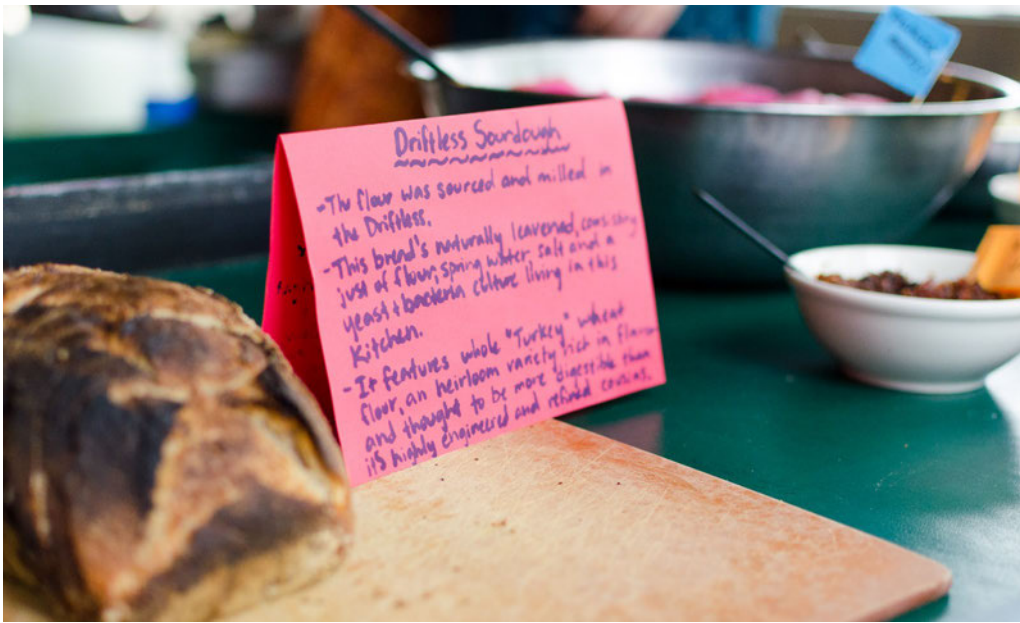 Driftless Sourdough
- The flour was sourced and milled in
the Driftless.
- This bread's naturally leavened, consisting
just of flour, spring water, salt and a
yeast + bacteria culture living in this
Kitchen.
- It features whole "Turkey" wheat
flour, an heirloom variety rich in flavor
and thought to be more digestible than
it's highly engineered and refined cousins.